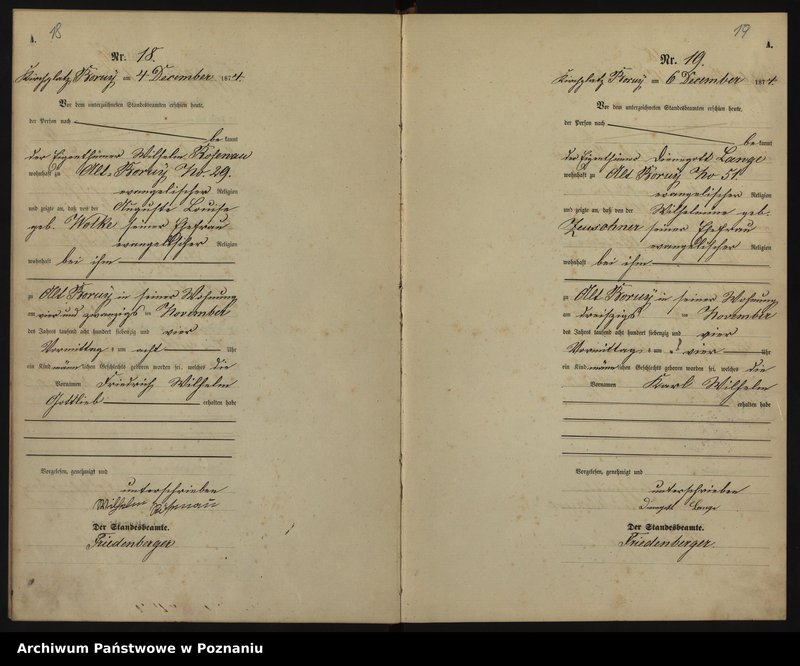 18
A.
Nr. 18.
Kirchplatz Boruy, am 4 December 1874.
Vor dem unterzeichneten Standesbeamten erschien heute,
der Person nach
be kannt
der Eigenthümer Wilhelm Rosenau
wohnhaft zu Alt-Boruy No. 29.
evangelischer Religion
und zeigte an, daß von der Auguste Louise
geb. Wolke seiner Ehefrau
evangelischer Religion
wohnhaft bei ihm
zu Alt Boruy in seiner Wohnung
am vier und zwanzigs ten November
des Jahres tausend acht hundert siebenzig und vier
Vormittag s um acht Uhr
ein Kind männ lichen Geschlechts geboren worden sei, welches die
Vornamen Friedrich Wilhelm
Gottlieb erhalten habe
Vorgelesen, genehmigt und
unterschrieben
Wilhelm Rosenau
Der Standesbeamte.
Friedenberger
19
A.
Nr. 19.
Kirchplatz Boruy am 6 December 1874.
Vor dem unterzeichneten Standesbeamten erschien heute,
der Person nach
be kannt
der Eigenthümer Lange
wohnhaft zu Alt Boruy No 51
evangelischer Religion
und zeigte an, daß von der Wilhelmine geb.
seiner Ehefrau
evangelischer Religion
wohnhaft bei ihm
zu Alt Boruy in seiner Wohnung
am dreißigs ten November
des Jahres tausend acht hundert siebenzig und vier
Vormittag s um vier Uhr
ein Kind männ lichen Geschlechts geboren worden sei, welches die
Vornamen Karl Wilhelm
erhalten habe
Vorgelesen, genehmigt und
unterschrieben
Lange
Der Standesbeamte.
Friedenberger.
Archiwum Państwowe w Poznaniu